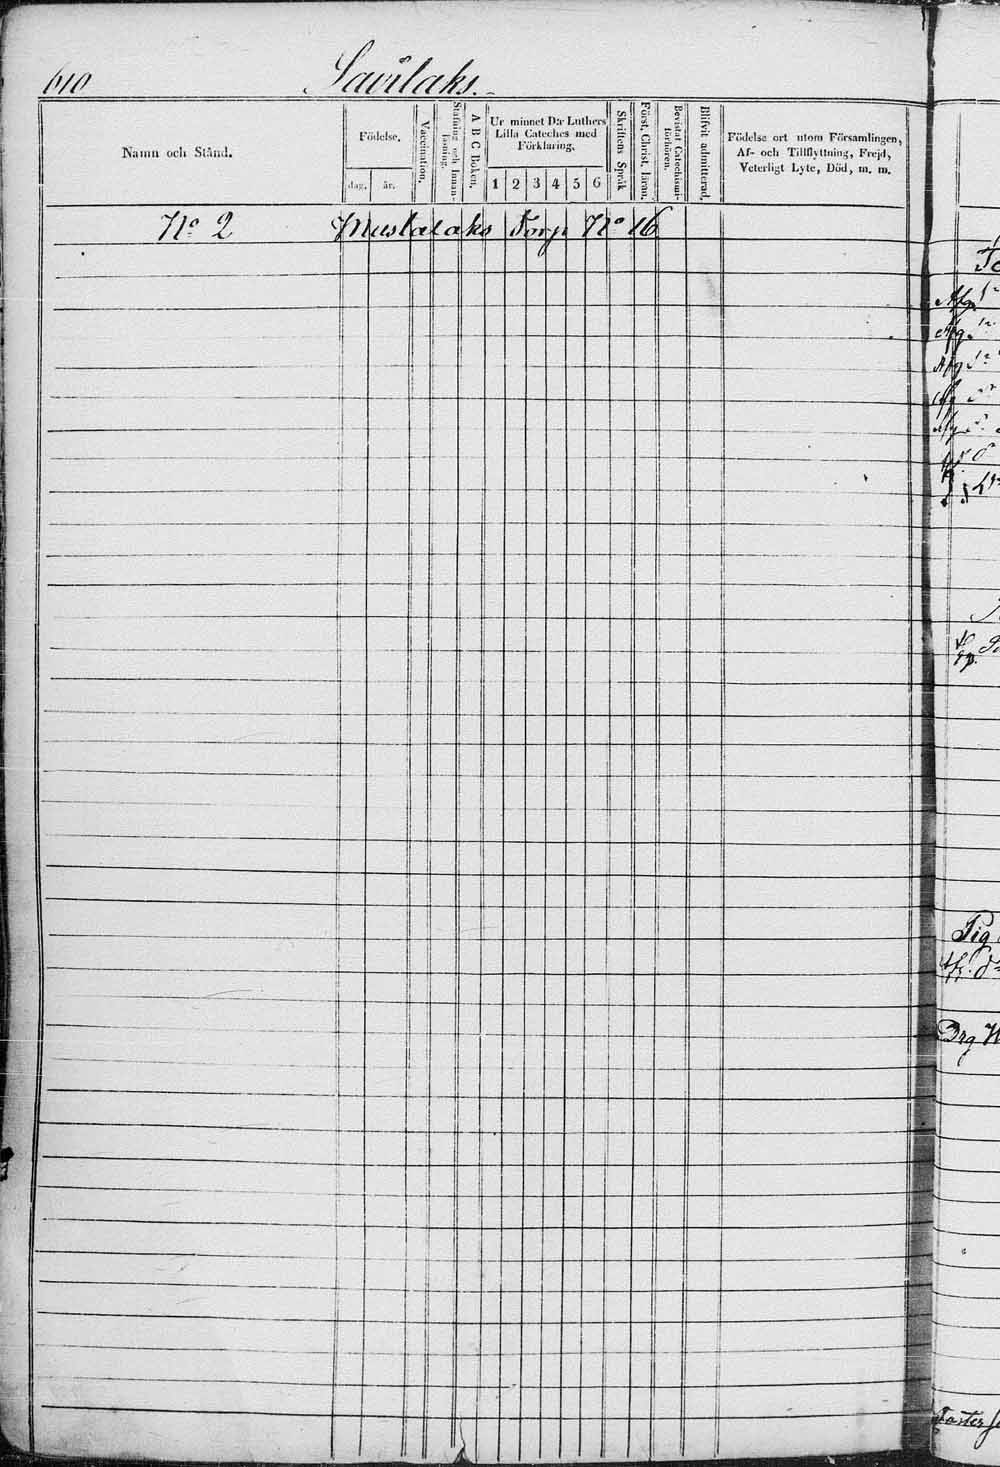 610 Savilaks.
Namn och Stånd.
Födelse.
dag. år.
Vaccination.
Stafning och Innanläsning.
A B C Boken.
Ur minnet D:r Luthers
Lilla Cateches med
Förklaring.
1 2 3 4 5 6
Skriftens Språk
Först. Christ. läran.
Bevistat Catechismiförhören.
Blifvit admitterad.
Födelse ort utom Församlingen,
Af- och Tillflyttning, Frejd,
Veterligt Lyte, Död, m. m.
No 2 Mustalaks Torp No 16
Afg.
Afg.
Afg
Pig